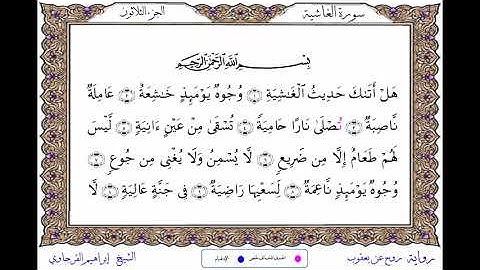 سورة الغاشية
الجزء الثلاثون
بِسْمِ اللَّهِ الرَّحْمَٰنِ الرَّحِيمِ
هَلْ أَتَىٰكَ حَدِيثُ الْغَٰشِيَةِ ۝ وُجُوهٌ يَوْمَئِذٍ خَٰشِعَةٌ ۝ عَامِلَةٌ
نَّاصِبَةٌ ۝ تُصْلَىٰ نَارًا حَامِيَةً ۝ تُسْقَىٰ مِنْ عَيْنٍ ءَانِيَةٍ ۝ لَّيْسَ
لَهُمْ طَعَامٌ إِلَّا مِن ضَرِيعٍ ۝ لَّا يُسْمِنُ وَلَا يُغْنِي مِن جُوعٍ ۝
وُجُوهٌ يَوْمَئِذٍ نَّاعِمَةٌ ۝ لِّسَعْيِهَا رَاضِيَةٌ ۝ فِي جَنَّةٍ عَالِيَةٍ ۝ لَّا
رواية روح عن يعقوب
الإدغام
الشيخ إبراهيم الفرجاوي